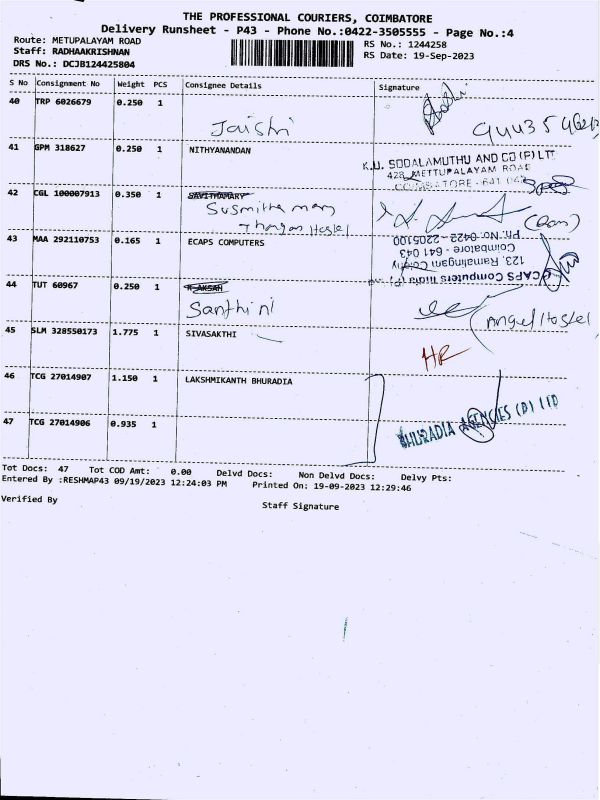 THE PROFESSIONAL COURIERS, COIMBATORE
Delivery Runsheet - P43 - Phone No.:0422-3505555 - Page No.:4
Route: METUPALAYAM ROAD
Staff: RADHAAKRISHNAN
DRS No.: DCJB124425804
RS No.: 1244258
RS Date: 19-Sep-2023
S No Consignment No Weight PCS Consignee Details Signature
40 TRP 6026679 0.250 1
Jaishri
41 GPM 318627 0.250 1 NITHYANANDAN
K.U. SODALAMUTHU AND CO (P) LTD
428, METTUPALAYAM ROAD
COIMBATORE - 641 043
42 CGL 100007913 0.350 1 SAVITHAMARY
Susmitha mary
Thangam Hostel
43 MAA 292110753 0.165 1 ECAPS COMPUTERS
ECAPS Computers India (P) Ltd
123, Ramalingam Colony
Coimbatore - 641 043
Ph: No: 0422 - 2205100
44 TUT 60967 0.250 1
Santhini
(Angel Hostel
45 SLM 328550173 1.775 1 SIVASAKTHI
HR
46 TCG 27014907 1.150 1 LAKSHMIKANTH BHURADIA
BHURADIA AGENCIES (P) LTD
47 TCG 27014906 0.935 1
Tot Docs: 47 Tot COD Amt: 0.00 Delvd Docs: Non Delvd Docs: Delvy Pts:
Entered By :RESHMAP43 09/19/2023 12:24:03 PM Printed On: 19-09-2023 12:29:46
Verified By
Staff Signature